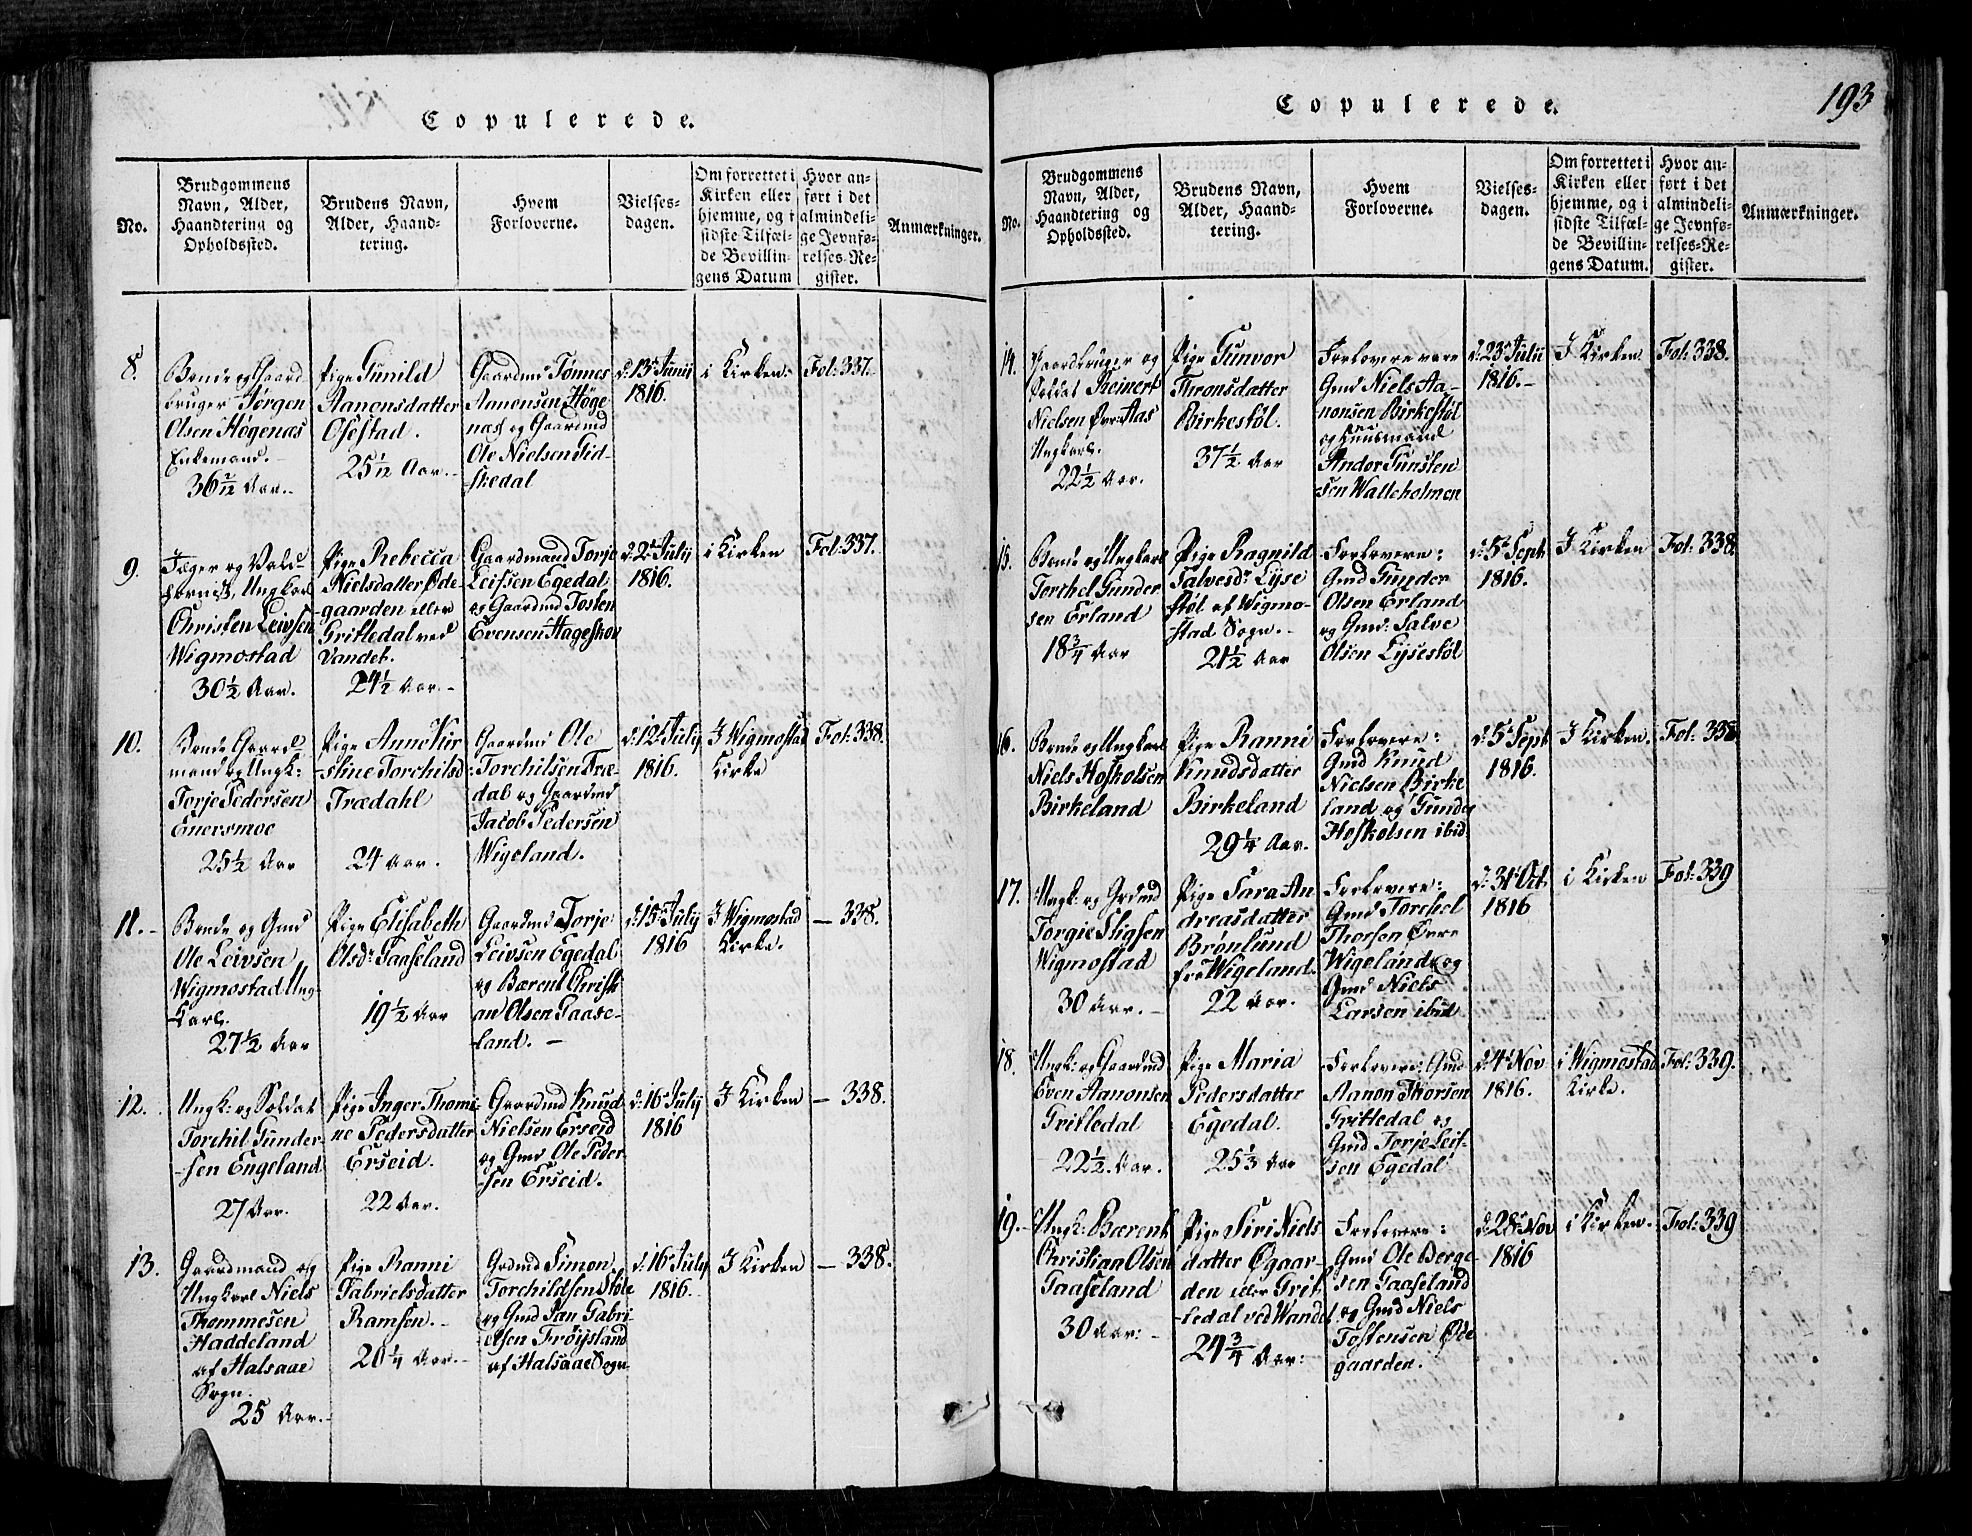 Copulerede.
No.
Brudgommens
Navn, Alder,
Haandtering og
Opholdssted.
Brudens Navn,
Alder, Haand-
tering.
Hvem
Forloverne.
Vielses-
dagen.
Om forrettet i
Kirken eller
hjemme, og i
sidste Tilfæl-
de Bevillin-
gens Datum
Hvor an-
ført i det
almindeli-
ge Jevnfø-
relses-Re-
gister.
Anmærkninger.
8.
Bonde og Gaard
bruger Jørgen
Olsen Høgenas
Enkemand.
36 2/12 Aar.
Pige Gunild
Aanonsdatter
Osestad.
25 1/12 Aar.
Gaardmd Tønnes
Aanonsen Høge
nas og Gaardmd
Ole Nielsen Gid-
skedal
d: 13de Junii
1816.
i Kirken.
Fol: 337.
9.
Jæger og Vald-
hornist, Ungkarl
Christen Leivsen
Wigmostad
30 1/2 Aar.
Pige Rebecca
Nielsdatter Øde-
gaarden eller
Gritledal ved
Vandet.
24 1/2 Aar.
Gaardmand Torje
Leifsen Egedal
og Gaardmd Tosten
Evensen Hageskov
d: 2de Julij
1816.
i Kirken
Fol: 337.
10.
Bonde Gaard-
mand og Ungk:
Torje Pedersen
Enersmoe
25 1/2 Aar
Pige Anne Kir
stine Torchilsd
Trædahl
24 Aar.
Gaardmd Ole
Torchilsen Træ-
dal og Gaardmd
Jacob Pedersen
Wigeland.
d: 12te Julij
1816.
I Wigmostad
Kirke
Fol: 338.
11.
Bonde og Gmd
Ole Leivsen
Wigmostad Ung-
karl.
27 1/2 Aar
Pige Elisabeth
Olsdr Gaaseland
19 1/2 Aar
Gaardmd Torje
Leivsen Egedal
og Bærent Christi
an Olsen Gaase-
land.
d: 15de Julij
1816
I Wigmostad
Kirke.
— 338.
12.
Ungk: og Soldat
Torchil Gunder-
sen Engeland
27 Aar.
Pige Inger Thomi-
ne Pedersdatter
Erseid.
22 Aar.
Gaardmd Knud
Nielsen Erseid
og Gmd Ole Peder
sen Erseid.
d: 16de Julij
1816
I Kirken
— 338.
13.
Gaardmand og
Ungkarl Niels
Thommesen
Haddeland
af Halsaae
Sogn.
25 Aar.
Pige Ranni
Gabrielsdatter
Ramsen.
20 1/4 Aar.
Grdmd Simon
Torchildsen Støle
og Gmd Jan Gabri-
elsen Trøijsland
af Halsaae Sogn
d: 16de Julij
1816.
I Kirken
— 338.
Copulerede.
193
No.
Brudgommens
Navn, Alder,
Haandtering og
Opholdssted.
Brudens Navn,
Alder, Haand-
tering.
Hvem
Forloverne.
Vielses-
dagen.
Om forrettet i
Kirken eller
hjemme, og i
sidste Tilfæl-
de Bevillin-
gens Datum.
Hvor an-
ført i det
almindeli-
ge Jevnfø-
relses-Re-
gister.
Anmærkninger.
14.
Gaardbruger og
Soldat Steinert
Nielsen Øvre Aas
Ungkarl.
22 1/2 Aar.
Pige Gunvor
Thronsdatter
Birkestøl.
37 1/2 Aar
Forlovere vare
Gmd Niels Aa-
nonsen Birkestøl
og Huusmand
Andor Gunsten
sen Walleholmen
d: 23de Julii
1816.
I Kirken
Fol: 338.
15.
Bonde og Ungkarl
Torchel Gunder
sen Erland
18 3/4 Aar
Pige Ragnild
Salvesdr Lyse
støl af Wigmo-
stad Sogn.
21 1/2 Aar
Forlovere:
Gmd Gunder
Olsen Erland
og Gmd: Salve
Olsen Lysestøl
d: 5te Sept
1816.
I Kirken
Fol: 338.
16.
Bonde og Ungkarl
Niels Hoskolsen
Birkeland
Pige Ranni
Knudsdatter
Birkeland
29 1/4 Aar.
Forlovere:
Gmd Knud
Nielsen Birke
land og Gunder
Hoskolsen ibid
d: 5te Sept
1816.
I Kirken.
Fol: 338
17.
Ungk: og Grdmd
Torgie Stigsen
Wigmostad
30 Aar.
Pige Sara An
dreasdatter
Brønlund
fra Wigeland.
22 Aar.
Forlovere:
Gmd Torchel
Thorsen Øvre
Wigeland og
Gmd Niels
Larsen ibid
d: 31te Oct.
1816
i Kirken
Fol: 339
18.
Ungk: og Gaardmd
Even Aanonsen
Gritledal
22 1/2 Aar.
Pige Maria
Pedersdatter
Egedal.
25 1/3 Aar
Forlovere: Gmd
Aanon Thorsen
Grittedal og
Gmd Torje Leif-
sen Egedal
d: 4de Nov
1816.
i Wigmostad
Kirke.
Fol: 339.
19.
Ungk: Bærent
Christian Olsen
Gaaseland
30 Aar.
Pige Siri Niels
datter Øgaar-
den eller Grit-
ledal ved Wandet
24 3/4 Aar:
Forlovere:
Gmd Ole Berge
sen Gaaseland
og Gmd Niels
Tostensen Øde
gaarden.
d: 28de Nov
1816
i Kirken.
Fol: 339